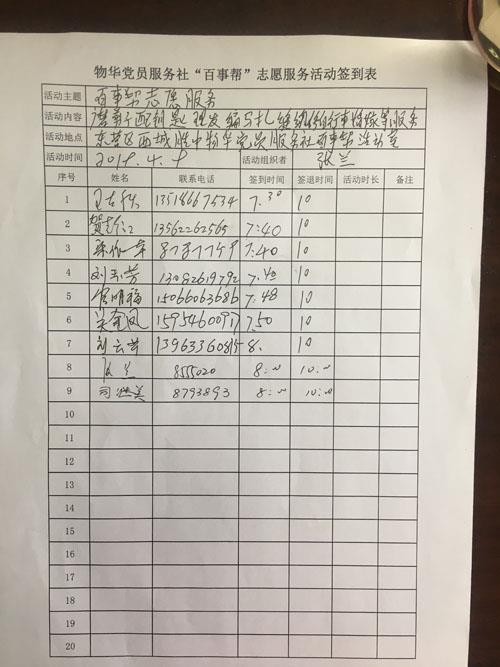 物华党员服务社“百事帮”志愿服务活动签到表
活动主题 百事帮志愿服务
活动内容 磨剪子配钥匙 理发 编马扎 缝纫 等服务
活动地点 东营区西城胜中物华党员服务社百事帮活动室
活动时间 2018.4.9 活动组织者 张兰
序号 姓名 联系电话 签到时间 签退时间 活动时长 备注
1 13518667534 7.30 10
2 13562262565 7:40 10
3 7:40 10
4 刘玉芳 13082619792 7.40 10
5 明福 15066063686 7:48 10
6 吴金凤 15954600917 7.50 10
7 刘云 13963360815 8. 10
8 张兰 8555020 8:00 10:00
9 司 美 8793893 8:00 10:00
10
11
12
13
14
15
16
17
18
19
20